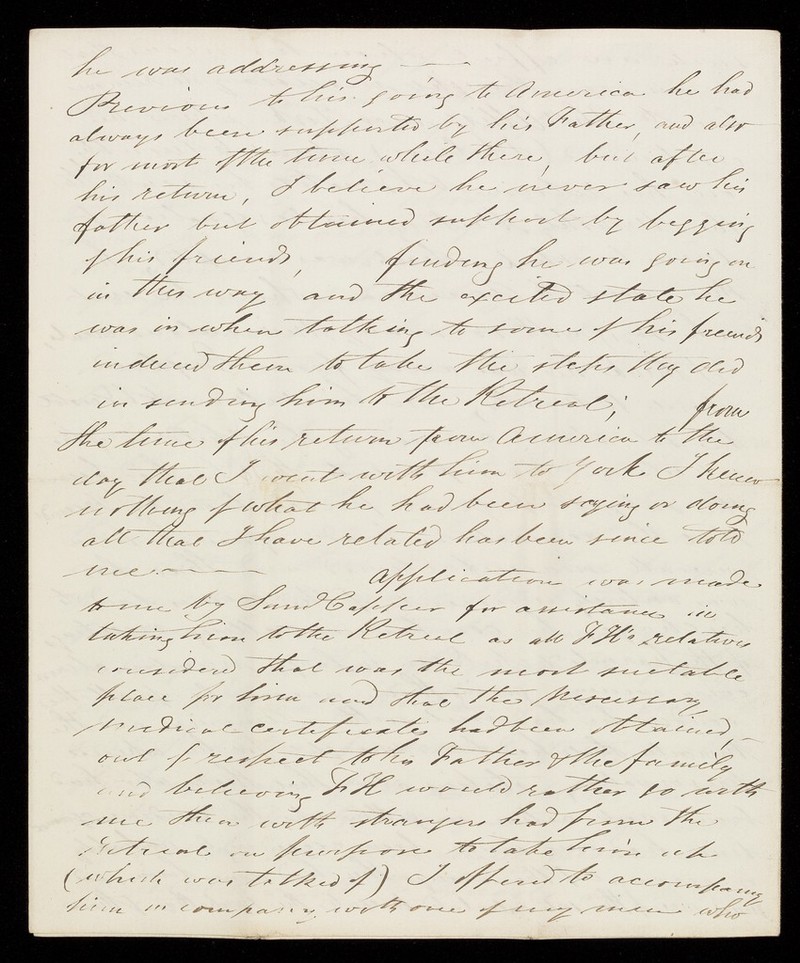 he was addressing —
Previous to his going to America he had
always been supported by his Father, and also
for most of the time while there, but after
his return, I believe he never saw his
father but obtained support by begging
of his friends, finding he was going on
in this way and the excited state he
was in when talking to some of his friends
induced them to take the steps they did
in sending him to the Retreat; from
the time of his return from America to the
day that I went with him to York I knew
nothing of what he had been saying or doing
all that I have related has been since told
me. — application was made
to me by for assistance in
taking him to the Retreat as all FH's relatives
considered that was the most suitable
place for him and that the necessary
medical certificates had been obtained, —
out of respect to his Father & the family
and believing FH would rather go with
me than with strangers had from the
Retreat on purpose to take him
(which was talked of) I offered to accompany
him in company with one of my men who